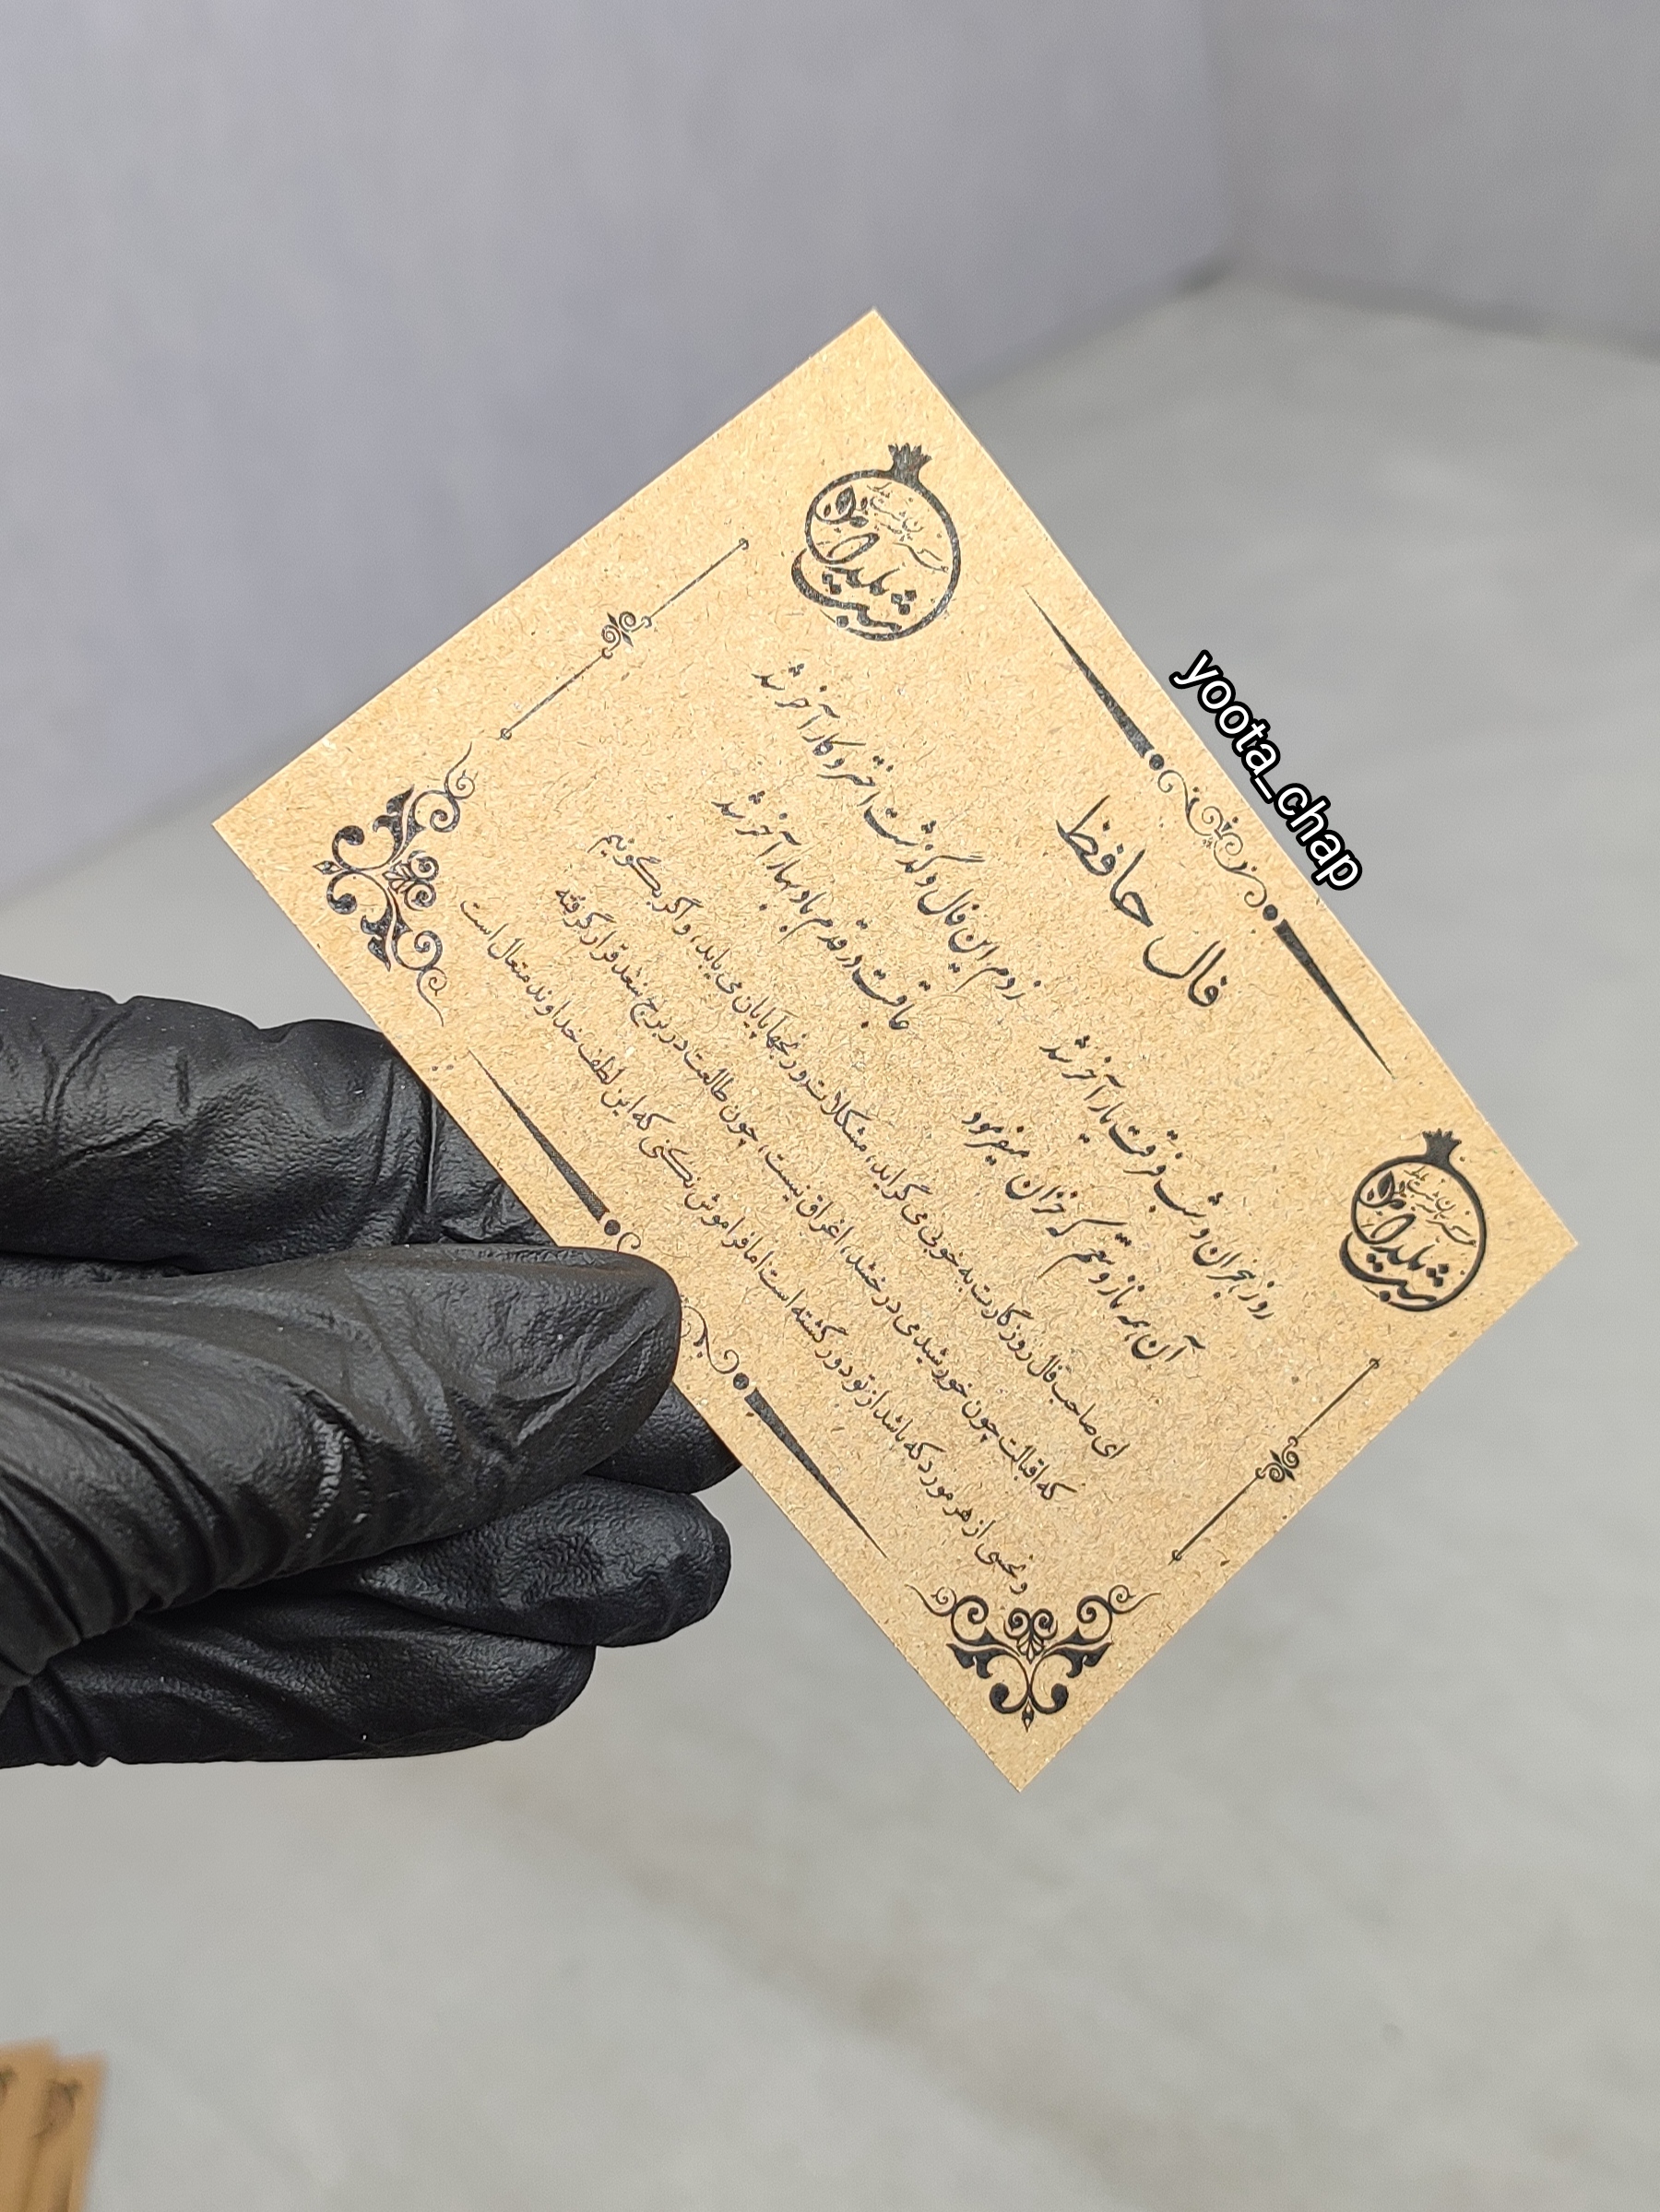 فال حافظ
روز هجران و شب فرقت یار آخر شد
زدم این فال و گذشت اختر و کار آخر شد
آن همه ناز و تنعم که خزان میفرمود
عاقبت در قدم باد بهار آخر شد
ای صاحب فال روزگارت به خوبی می گراید، مشکلات و رنجها پایان می یابد، و اگر بگوئیم
که اقبالت چون خورشیدی درخشد، اغراق نیست، چون طالعت در برج سعد قرار گرفته
و نحسی از هر مورد که باشد از تو دور گشته است اما فراموش نکنی که این لطف خداوند متعال است
شب یلدا
شب یلدا
yoota_chap